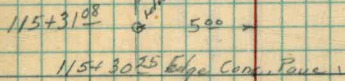 115+31⁰⁸ 5⁰⁰
115+30²⁵ Edge Conc. Pave.